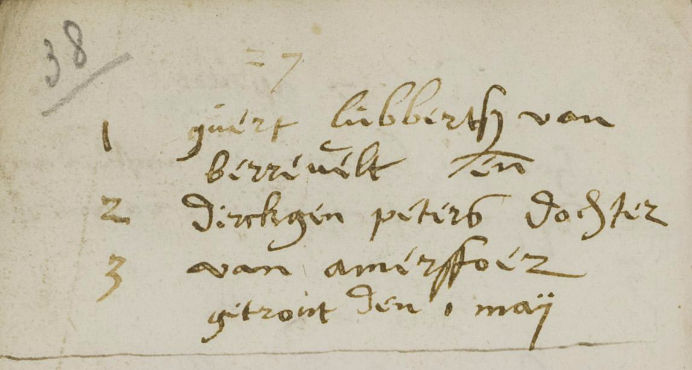 38
27
1 guert lubbertss van
berrevelt en
2 dirckgen peters dochter
3 van amersfoer
getrout den 1 maÿ